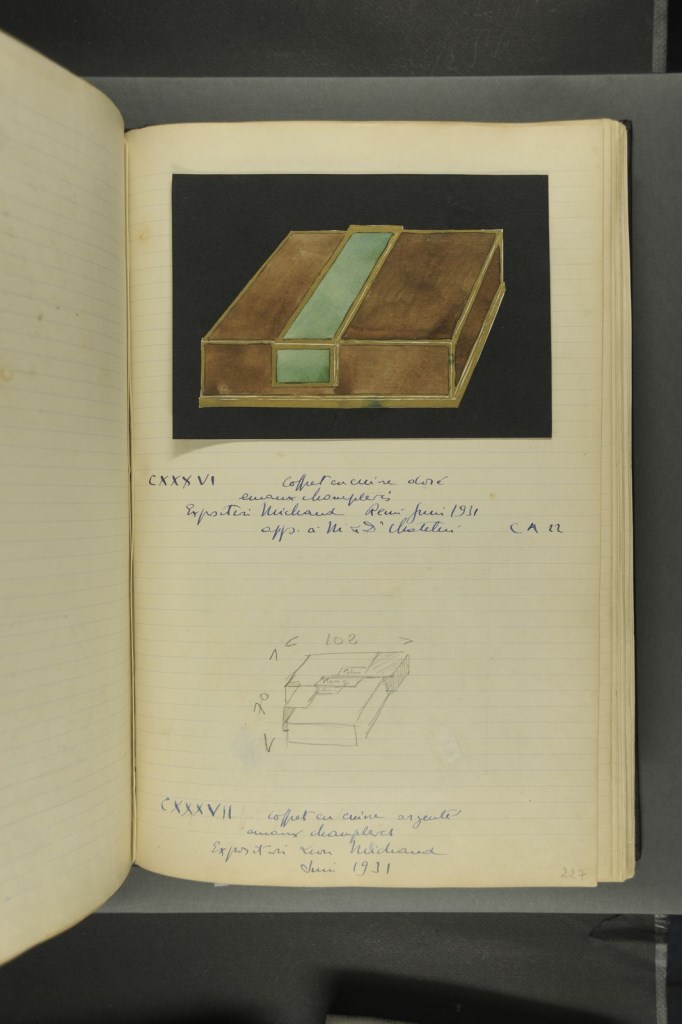 CXXXVI coffret en cuivre doré
émaux champlevés
Exposition Michaud Juin 1931
app. à M le Dr CA 22
102
70
CXXXVII coffret en cuivre argenté
émaux champlevés
Exposition Léon Michaud
Juin 1931
227